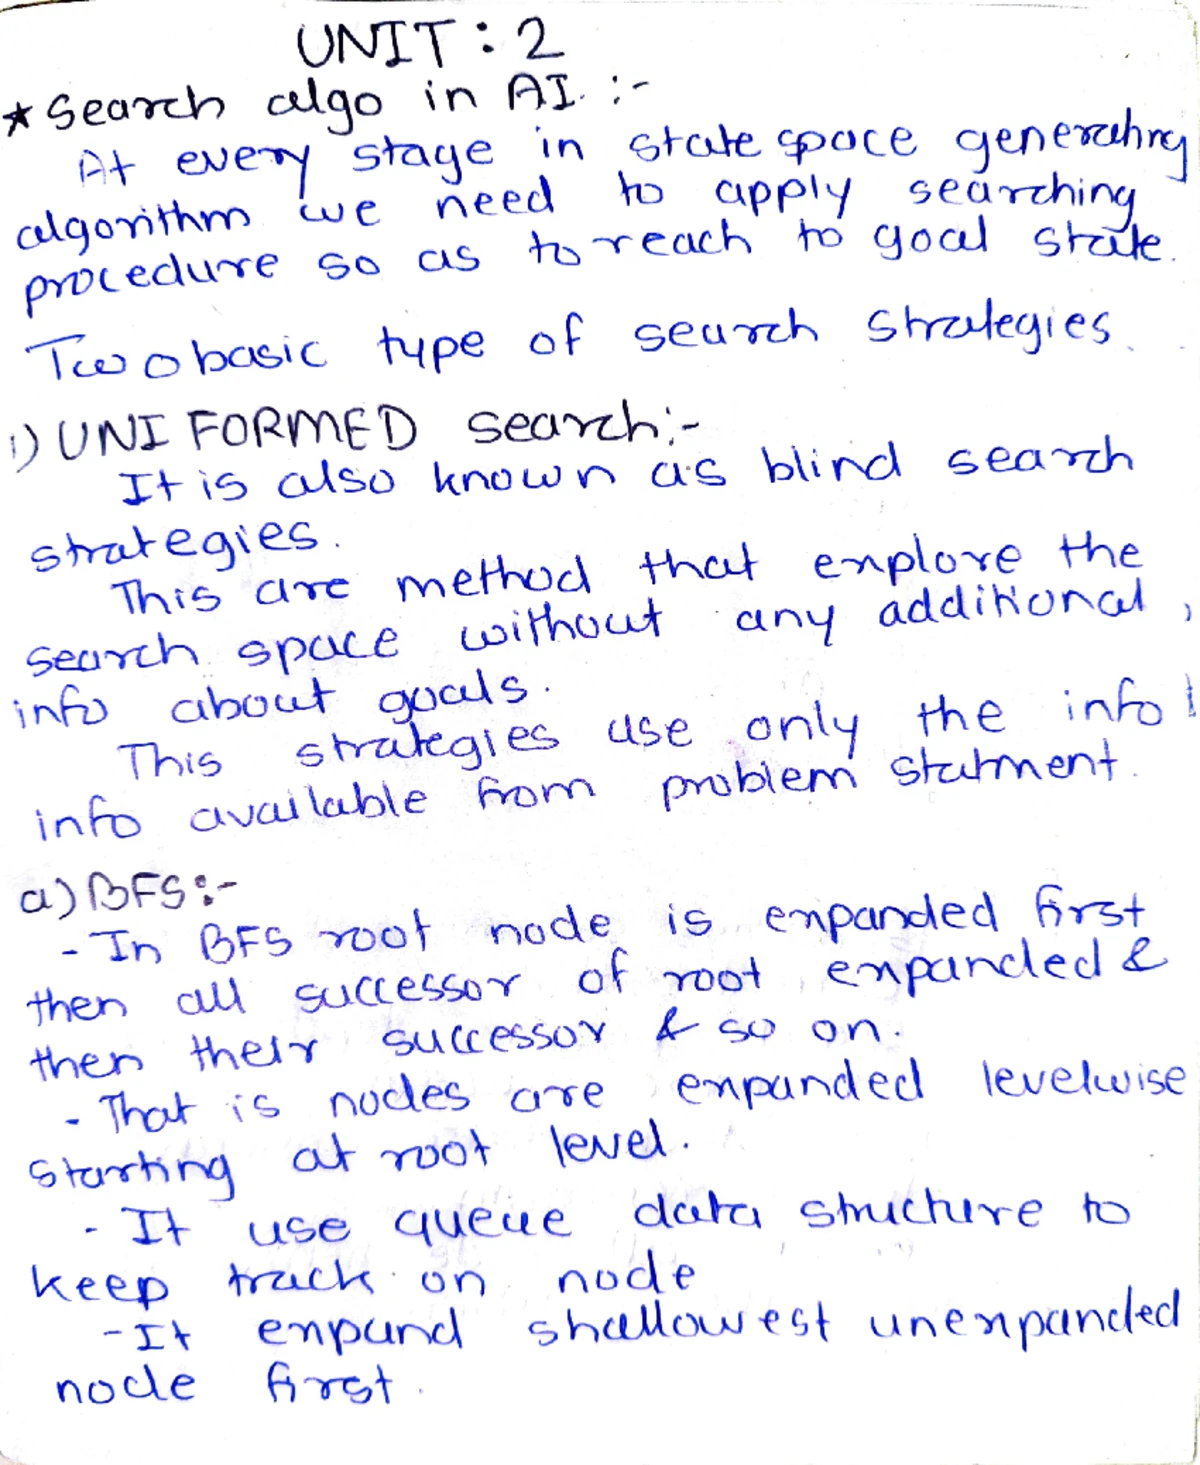 UNIT : 2
★ Search algo in AI. :-
At every stage in state space generating
algorithm we need to apply searching
procedure so as to reach to goal state.
Two basic type of search strategies.
1) UNIFORMED search:-
It is also known as blind search
strategies.
This are method that explore the
search space without any additional
info about goals.
This strategies use only the info
info available from problem statment.
a) BFS:-
- In BFS root node is expanded first
then all successor of root expanded &
then their successor & so on.
- That is nodes are expanded levelwise
starting at root level.
- It use queue data structure to
keep track on node
- It expand shallowest unexpanded
node first.